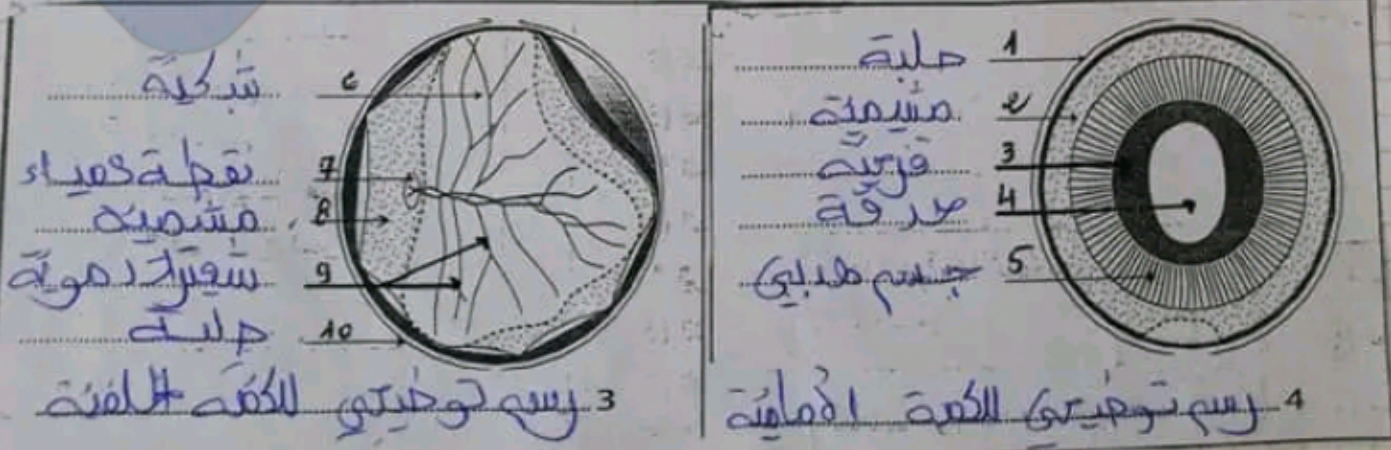 صلبة 1
مشيمية 2
قزحية 3
حدقة 4
جسم هدبي 5
رسم توضيحي للكمة الأمامية 4
شبكية 6
نقطة عمياء 7
مشمية 8
شعيرات دموية 9
صلبة 10
رسم توضيحي للكمة الخلفية 3